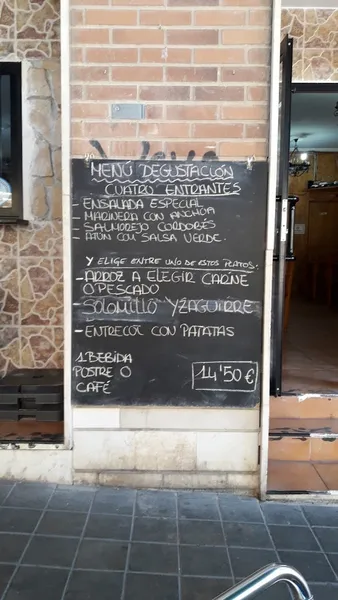 MENÚ DEGUSTACIÓN
CUATRO ENTRANTES
- ENSALADA ESPECIAL
- MARINERA CON ANCHOA
- SALMOREJO CORDOBÉS
- ATÚN CON SALSA VERDE.
Y ELIGE ENTRE UNO DE ESTOS PLATOS:
- ARROZ A ELEGIR CARNE
O PESCADO
- SOLOMILLO YZAGUIRRE
- ENTRECOT CON PATATAS
1 BEBIDA
POSTRE O
CAFÉ
14'50€